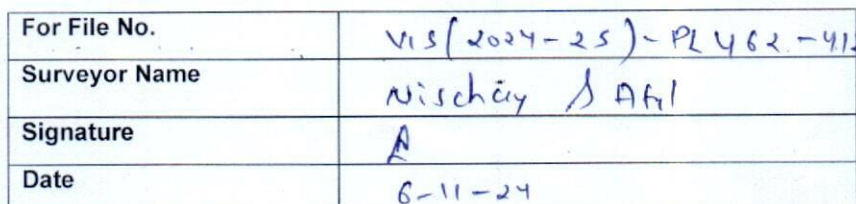 For File No. VIS(2024-25)-PL462-41
Surveyor Name Nischay
Signature
Date 6-11-24